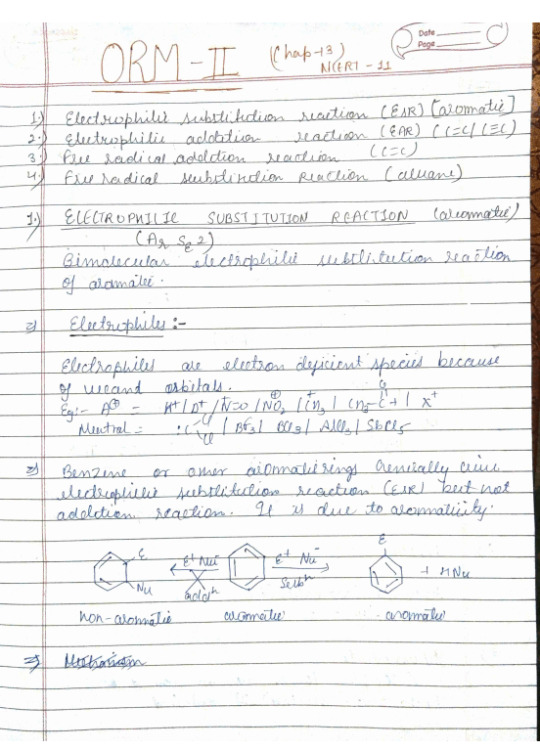 Date
Page
ORM-II (Chap-13)
NCERT-11
1.) Electrophilic substitution reaction (ESR) [aromatic]
2.) Electrophilic addition reaction (EAR) (C=C/C≡C)
3.) Free radical addition reaction (C=C)
4.) Free radical substitution reaction (alkane)
1.) ELECTROPHILIC SUBSTITUTION REACTION (aromatic)
(Ar SE2)
Bimolecular electrophilic substitution reaction
of aromatic.
⇒ Electrophiles :-
Electrophiles are electron deficient species because
of vacant orbitals.
Eg:- A⊕ - H+/D+/N=O/NO2/CH3/CH3-C+/X+
Neutral = :C Cl Cl / BF3 / BCl3 / AlCl3 / SbCl5
⇒ Benzene or other aromatic rings Generally give
electrophilic substitution reaction (ESR) but not
addition reaction. It is due to aromaticity.
E Nu E+ Nu- addn E+ Nu- Subn E + HNu
non-aromatic aromatic aromatic
⇒ Mechanism